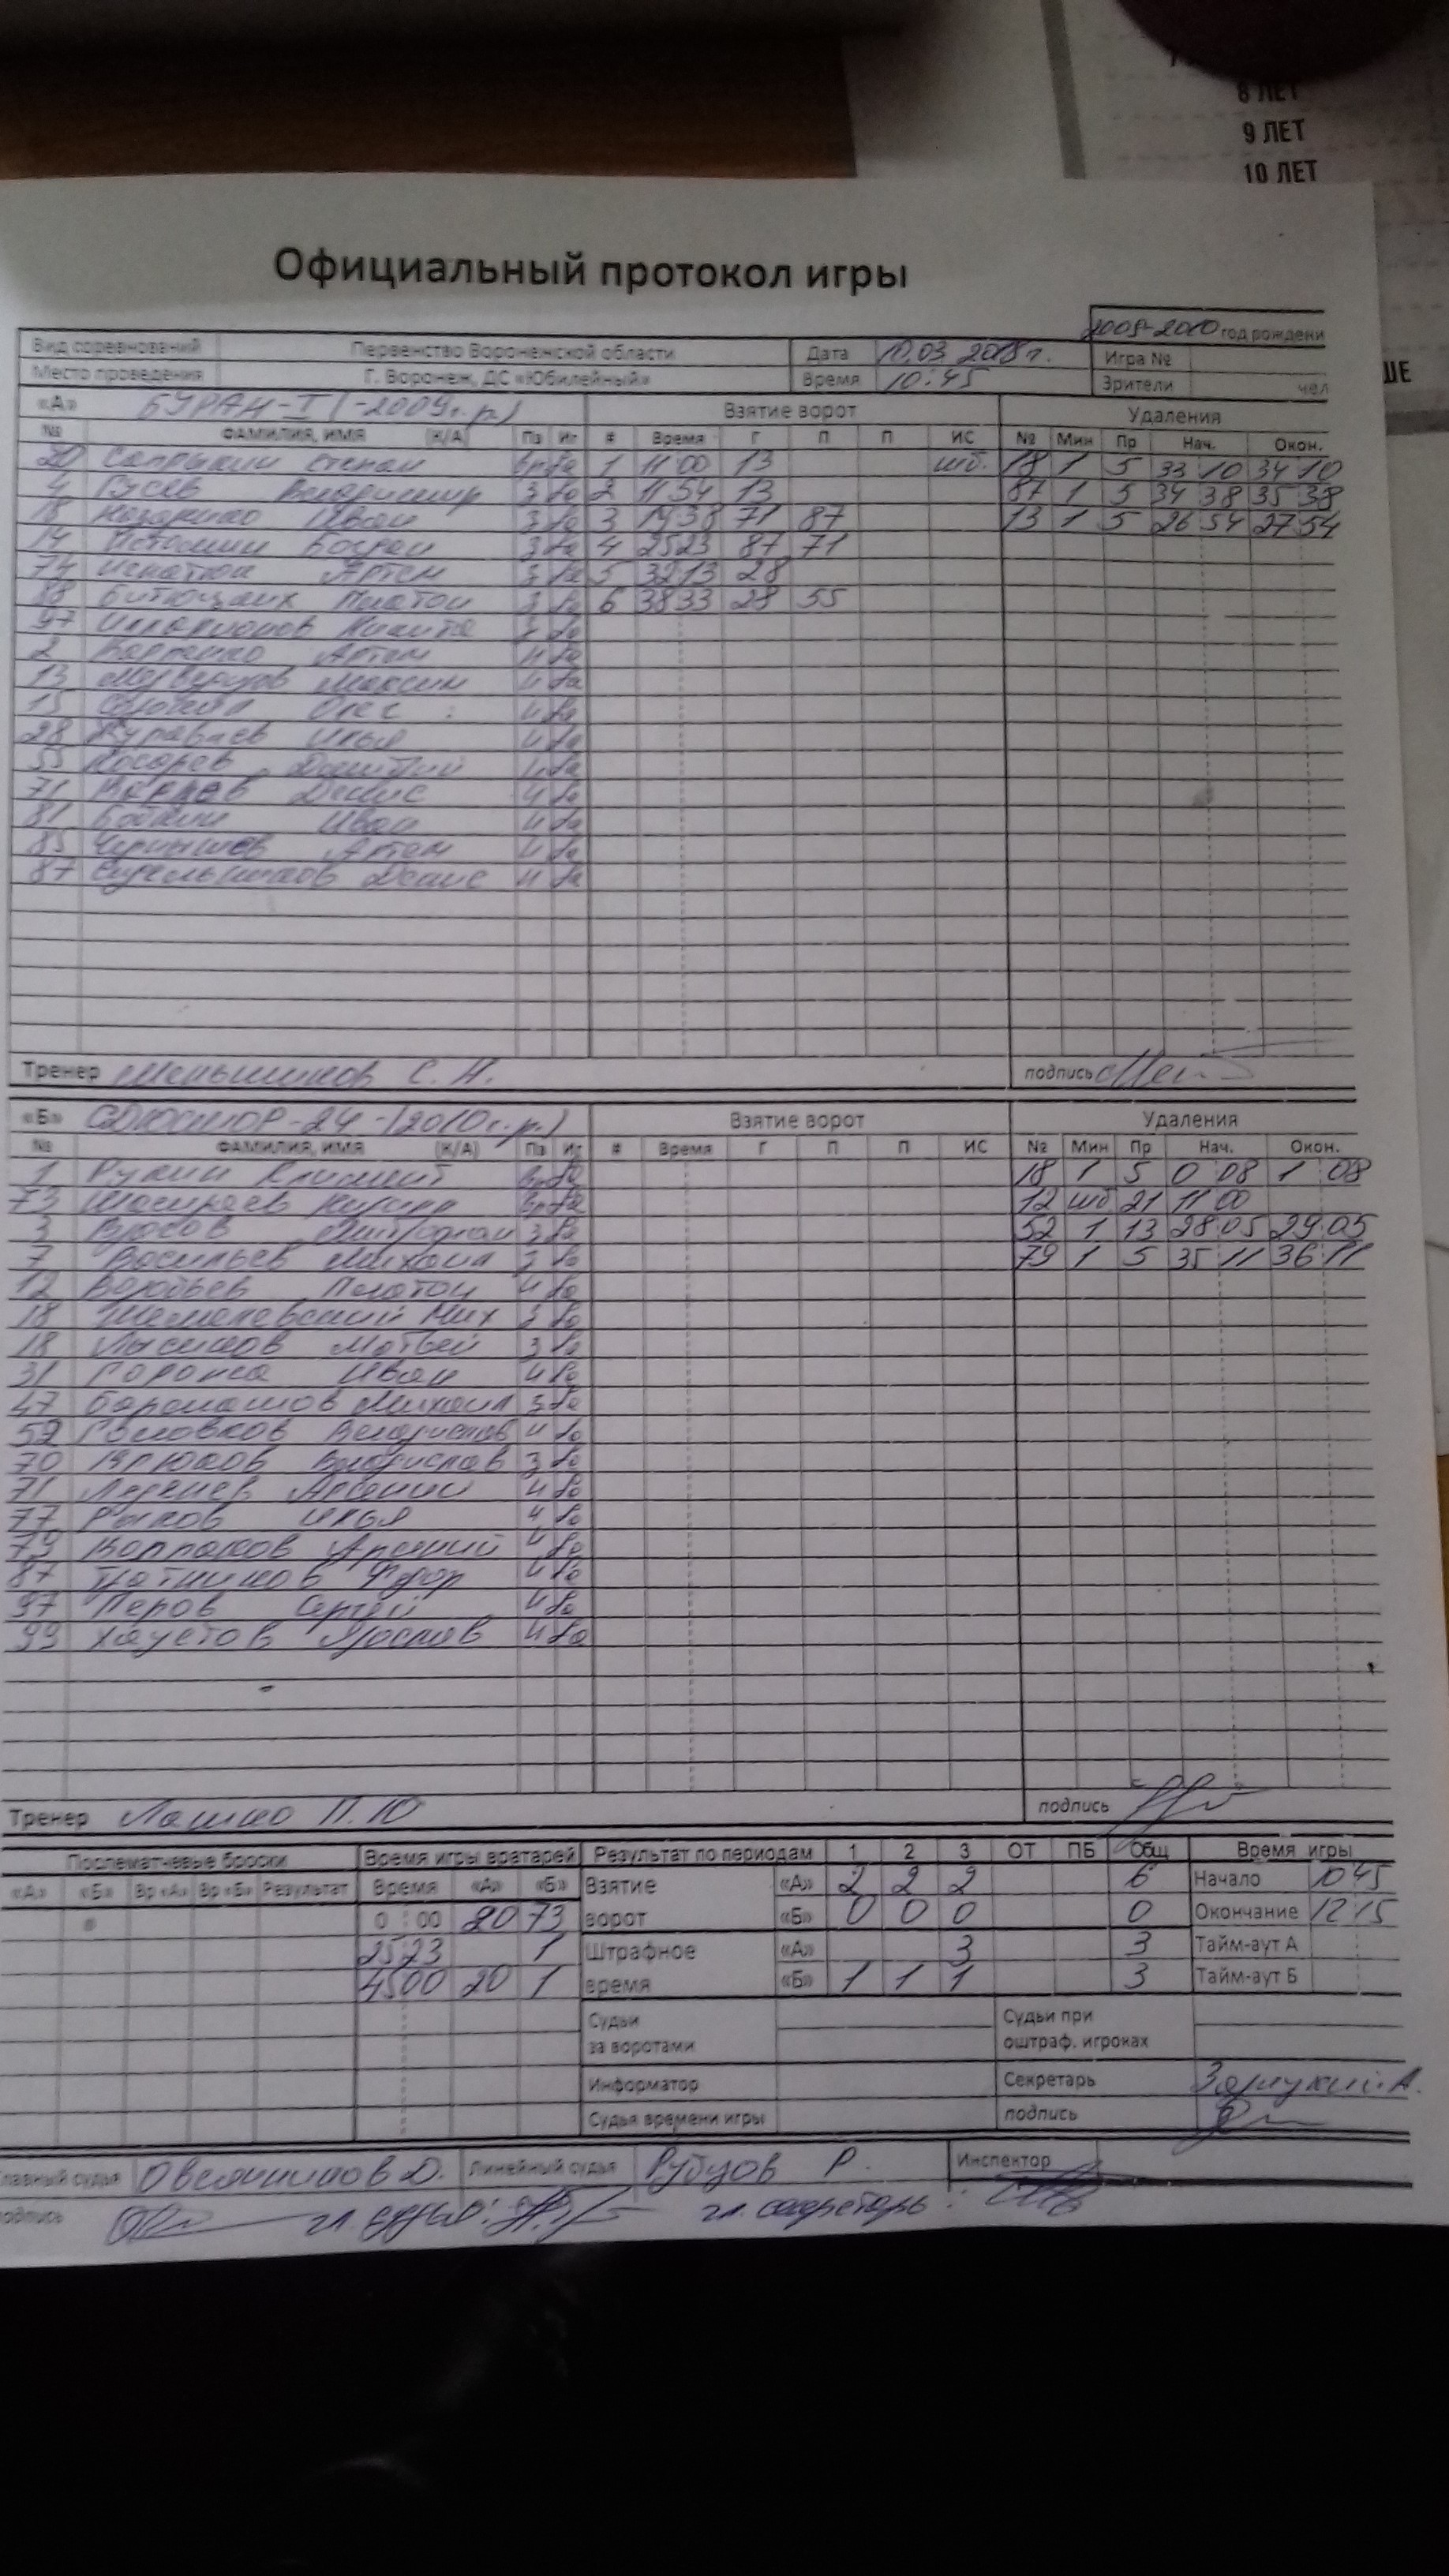 8 ЛЕТ
9 ЛЕТ
10 ЛЕТ
ШЕ
Официальный протокол игры
2009-2010 год рождени
Вид соревнований Первенство Воронежской области Дата 10.03 2018г. Игра №
Место проведения Г. Воронеж, ДС «Юбилейный» Время 10:45 Зрители чел
«А» БУРАН-I (-2009г.р) Взятие ворот Удаления
№ ФАМИЛИЯ, ИМЯ (К/А) Пз Иг # Время Г П П ИС № Мин Пр Нач. Окон.
20 Сапрыкин Степан Вр Да 1 11 00 13 шб. 18 1 5 33 10 34 10
4 Гусев Владимир З Да 2 11 54 13 87 1 5 34 38 35 38
18 Назаренко Иван З Да 3 19 38 71 87 13 1 5 26 54 27 54
14 Истомин Богдан З Да 4 25 23 87 71
74 Игнатюк Артем З Да 5 32 13 28
88 Битюцких Платон З Да 6 38 33 28 55
97 Илларионов Никита З Да
2 Карпенко Артем Н Да
13 Максим Н Да
15 Олег Н Да
28 Журавлев Илья Н Да
55 Косарев Дмитрий Н Да
71 Денис Н Да
81 Бабкин Иван Н Да
85 Чернышов Артем Н Да
87 Стрельников Денис Н Да
Тренер Меньшиков С. Н. подпись
«Б» СДЮСШОР-24 -(2010г.р.) Взятие ворот Удаления
№ ФАМИЛИЯ, ИМЯ (К/А) Пз Иг # Время Г П П ИС № Мин Пр Нач. Окон.
1 Рукин Климент Вр Да 18 1 5 0 08 1 08
73 Вр Да 12 шб 21 11 00
3 Митрофан З Да 52 1 13 28 05 29 05
7 Васильев Михаил З Да 79 1 5 35 11 36 11
12 Воробьев Платон Н Да
18 Мих З Да
18 Лысиков Матвей З Да
31 Иван Н Да
47 Михаил З Да
52 Головков Владислав Н Да
70 Крюков Владислав З Да
71 Леденев Арсений Н Да
77 Рыков Илья Н Да
79 Колпаков Арсений Н Да
87 Плотников Федор Н Да
97 Перов Сергей Н Да
99 Хаустов Ярослав Н Да
Тренер Лашко П.Ю подпись
Послематчевые броски Время игры вратарей Результат по периодам 1 2 3 ОТ ПБ Общ Время игры
«А» «Б» Вр «А» Вр «Б» Результат Время «А» «Б» Взятие «А» 2 2 2 6 Начало 10 45
0 : 00 20 73 ворот «Б» 0 0 0 0 Окончание 12 15
25 23 1 Штрафное «А» 3 3 Тайм-аут А
45 00 20 1 время «Б» 1 1 1 3 Тайм-аут Б
Судьи Судьи при
за воротами оштраф. игроках
Информатор Секретарь
Судья времени игры подпись
лавный судья Овсянников Д. Линейный судья Рубцов Р. Инспектор
одпись гл. судья: гл. секретарь: